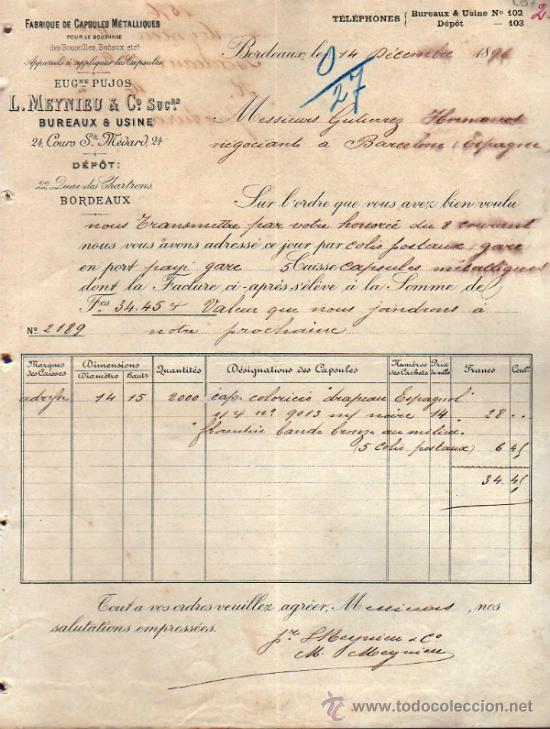 FABRIQUE DE CAPSULES MÉTALLIQUES
POUR LE BOUCHAGE
des Bouteilles, Bocaux, etc.
Appareils à appliquer les Capsules
EUG.NE PUJOS
L. MEYNIEU & C.o SUC.RS
BUREAUX & USINE
24, Cours St. Médard, 24
DÉPÔT:
22, Quai des Chartrons,
BORDEAUX
TÉLÉPHONES Bureaux & Usine No 102
Dépôt — 103
2
Bordeaux, le 14 Décembre 1896
0/27
Messieurs Gutierrez Hermanos
négociants à Barcelone (Espagne)
Sur l'ordre que vous avez bien voulu
nous Transmettre par votre honorée du 8 courant
nous vous avons adressé ce jour par colis postaux gare
en port payé gare 5 Caisse capsules métalliques
dont la Facture ci-après s'élève à la Somme de
Fcs 34.45 Valeur que nous joindrons à
No 2189 notre prochaine
Marques des Caisses Dimensions Diamètre Hauts Quantités Désignations des Capsules Numéros des Cachets Prix du mille Francs Cent.
14 15 2000 cap. drapeau Espagnol
no 9013 noire 14 28 "
bande bronze au milieu
(5 colis postaux) 6 45
34 45
Tout à vos ordres veuillez agréer, Messieurs, nos
salutations empressées.
L Meynieu & Co
M. Meynieu
todocoleccion.net